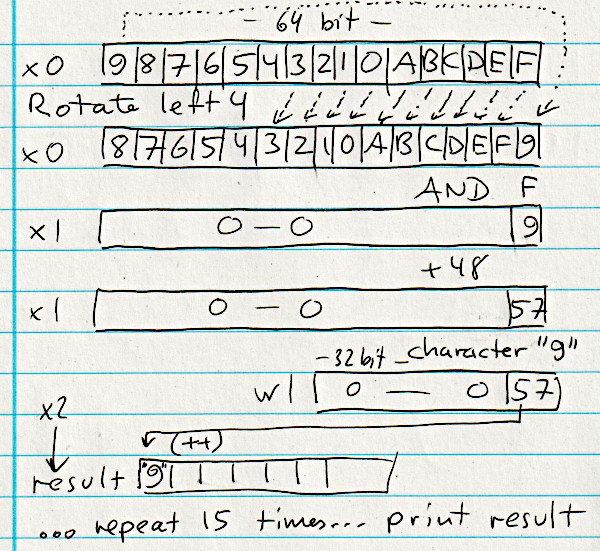 - 64 bit -
x0 9 8 7 6 5 4 3 2 1 0 A B C D E F
Rotate left 4
x0 8 7 6 5 4 3 2 1 0 A B C D E F 9
AND F
x1 0 - 0 9
+48
x1 0 - 0 57
-32 bit - character "9"
w1 0 - 0 57
x2
(++)
result "9"
... repeat 15 times... print result